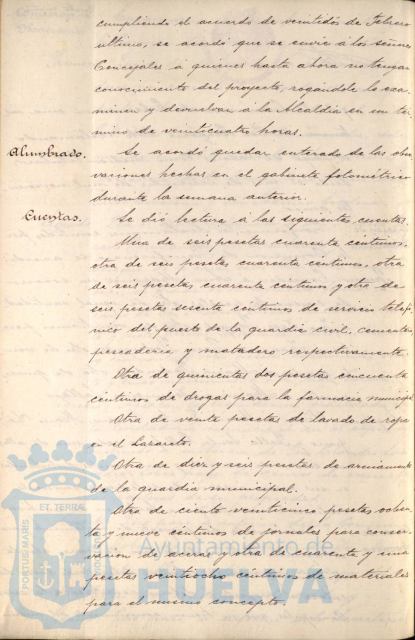 cumpliendo el acuerdo de veintidos de Febrero
último, se acordó que se envíe á los señores
Concejales á quienes hasta ahora no tengan
conocimiento del proyecto, rogándole lo exa-
minen y devuelvan á la Alcaldía en un tér-
mino de veinticuatro horas.
Alumbrado.
Se acordó quedar enterado de las obser-
vaciones hechas en el gabinete fotométrico
durante la semana anterior.
Cuentas.
Se dió lectura á las siguientes cuentas.
Una de seis pesetas cuarenta céntimos,
otra de seis pesetas cuarenta céntimos, otra
de seis pesetas cuarenta céntimos y otra de
seis pesetas sesenta céntimos de servicio telefó-
nico del puesto de la guardia civil, cementerio,
pescadería y matadero respectivamente.
Otra de quinientas dos pesetas cincuenta
céntimos de drogas para la farmacia municipal
Otra de veinte pesetas de lavado de ropa
en el Lazareto.
Otra de diez y seis pesetas de
de la guardia municipal.
Otra de ciento veinticinco pesetas ochen-
ta y nueve céntimos de jornales para conser-
vación de aceras y otra de cuarenta y una
pesetas veintiocho céntimos de materiales
para el mismo concepto.
PORTUS MARIS
ET. TERRAE
Ayuntamiento de
HUELVA